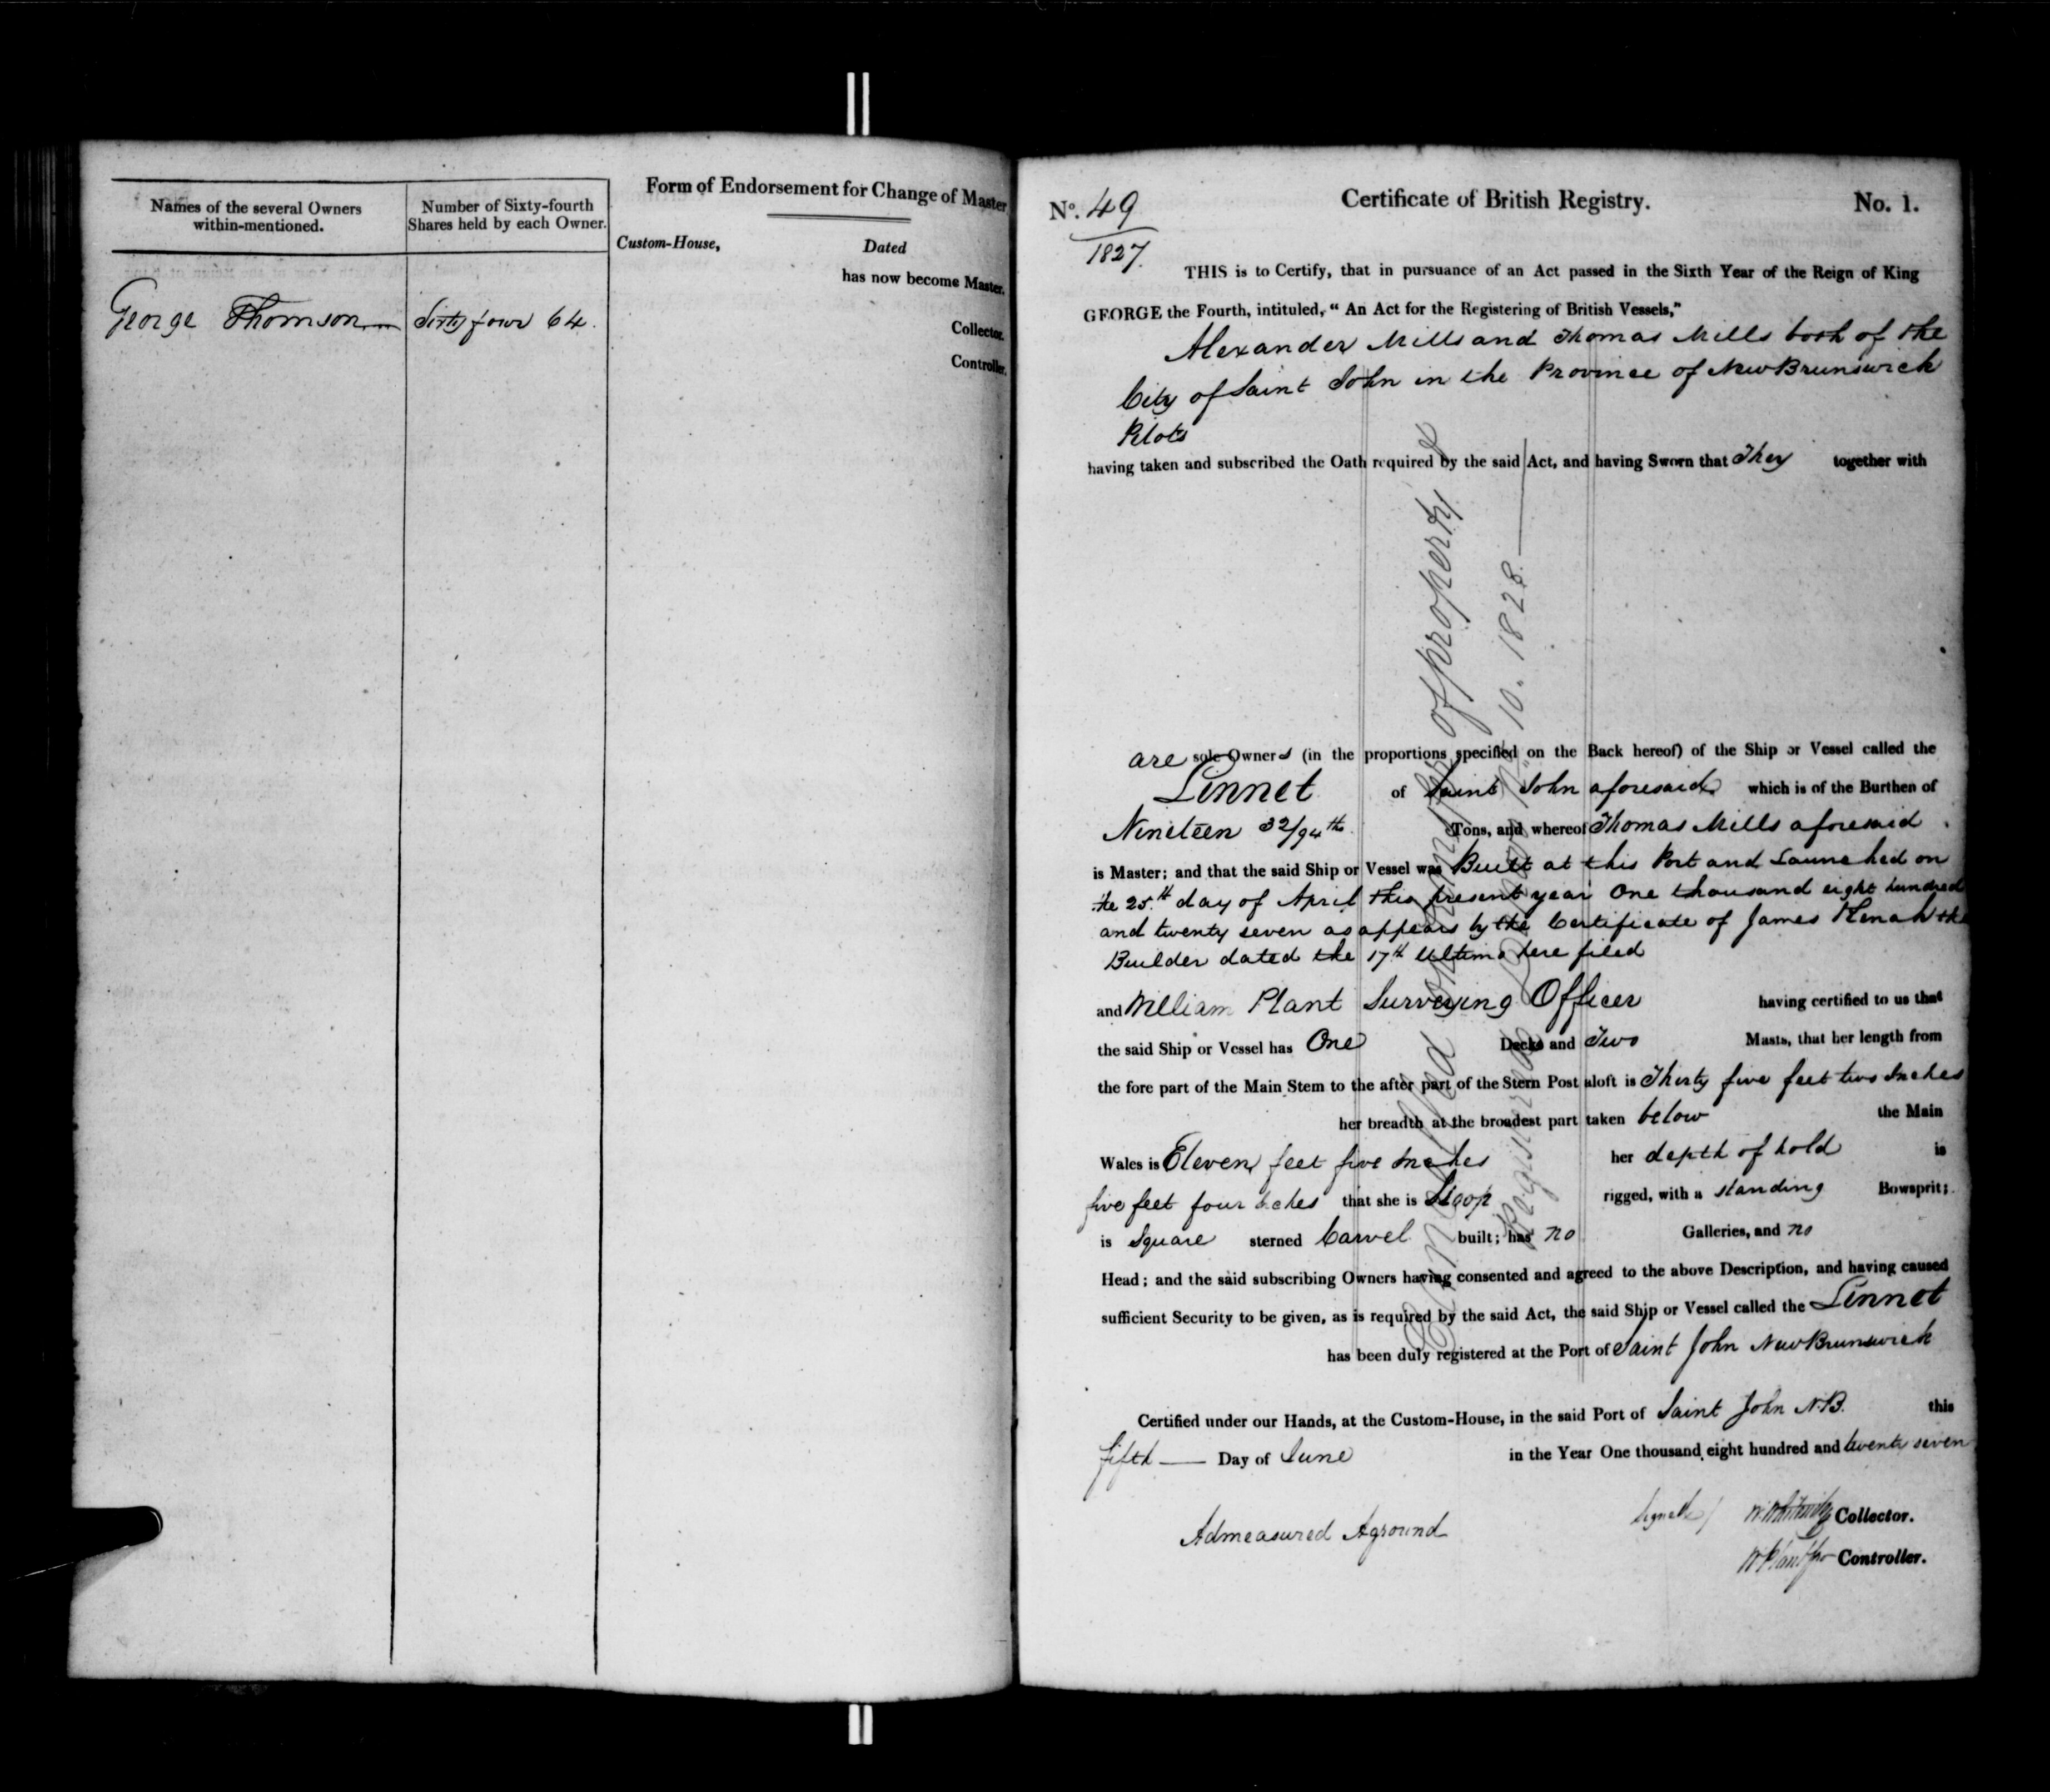 Names of the several Owners
within-mentioned.
Number of Sixty-fourth
Shares held by each Owner.
George Thomson
Sixty four 64.
Form of Endorsement for Change of Master
Custom-House,
Dated
has now become Master.
Collector.
Controller.
No. 49
1827.
Certificate of British Registry.
No. 1.
THIS is to Certify, that in pursuance of an Act passed in the Sixth Year of the Reign of King
GEORGE the Fourth, intituled, "An Act for the Registering of British Vessels,"
Alexander Mills and Thomas Mills both of the
City of Saint John in the Province of New Brunswick
Pilots
having taken and subscribed the Oath required by the said Act, and having Sworn that They together with
are sole Owners (in the proportions specified on the Back hereof) of the Ship or Vessel called the
Linnet of Saint John aforesaid which is of the Burthen of
Nineteen 32/94th Tons, and whereof Thomas Mills aforesaid
is Master; and that the said Ship or Vessel was Built at this Port and Launched on
the 25th day of April this present year One thousand eight hundred
and twenty seven as appears by the Certificate of James the
Builder dated the 17th Ultimo here filed
and William Plant Surveying Officer having certified to us that
the said Ship or Vessel has One Decks and Two Masts, that her length from
the fore part of the Main Stem to the after part of the Stern Post aloft is Thirty five feet two Inches
her breadth at the broadest part taken below the Main
Wales is Eleven feet five Inches her depth of hold is
five feet four Inches that she is Sloop rigged, with a standing Bowsprit;
is Square sterned Carvel built; has no Galleries, and no
Head; and the said subscribing Owners having consented and agreed to the above Description, and having caused
sufficient Security to be given, as is required by the said Act, the said Ship or Vessel called the Linnet
has been duly registered at the Port of Saint John New Brunswick
Certified under our Hands, at the Custom-House, in the said Port of Saint John N.B. this
fifth Day of June in the Year One thousand eight hundred and twenty seven
Admeasured Aground
Signed / Collector.
Controller.
Cancelled of property &
Registered 10. 1828.